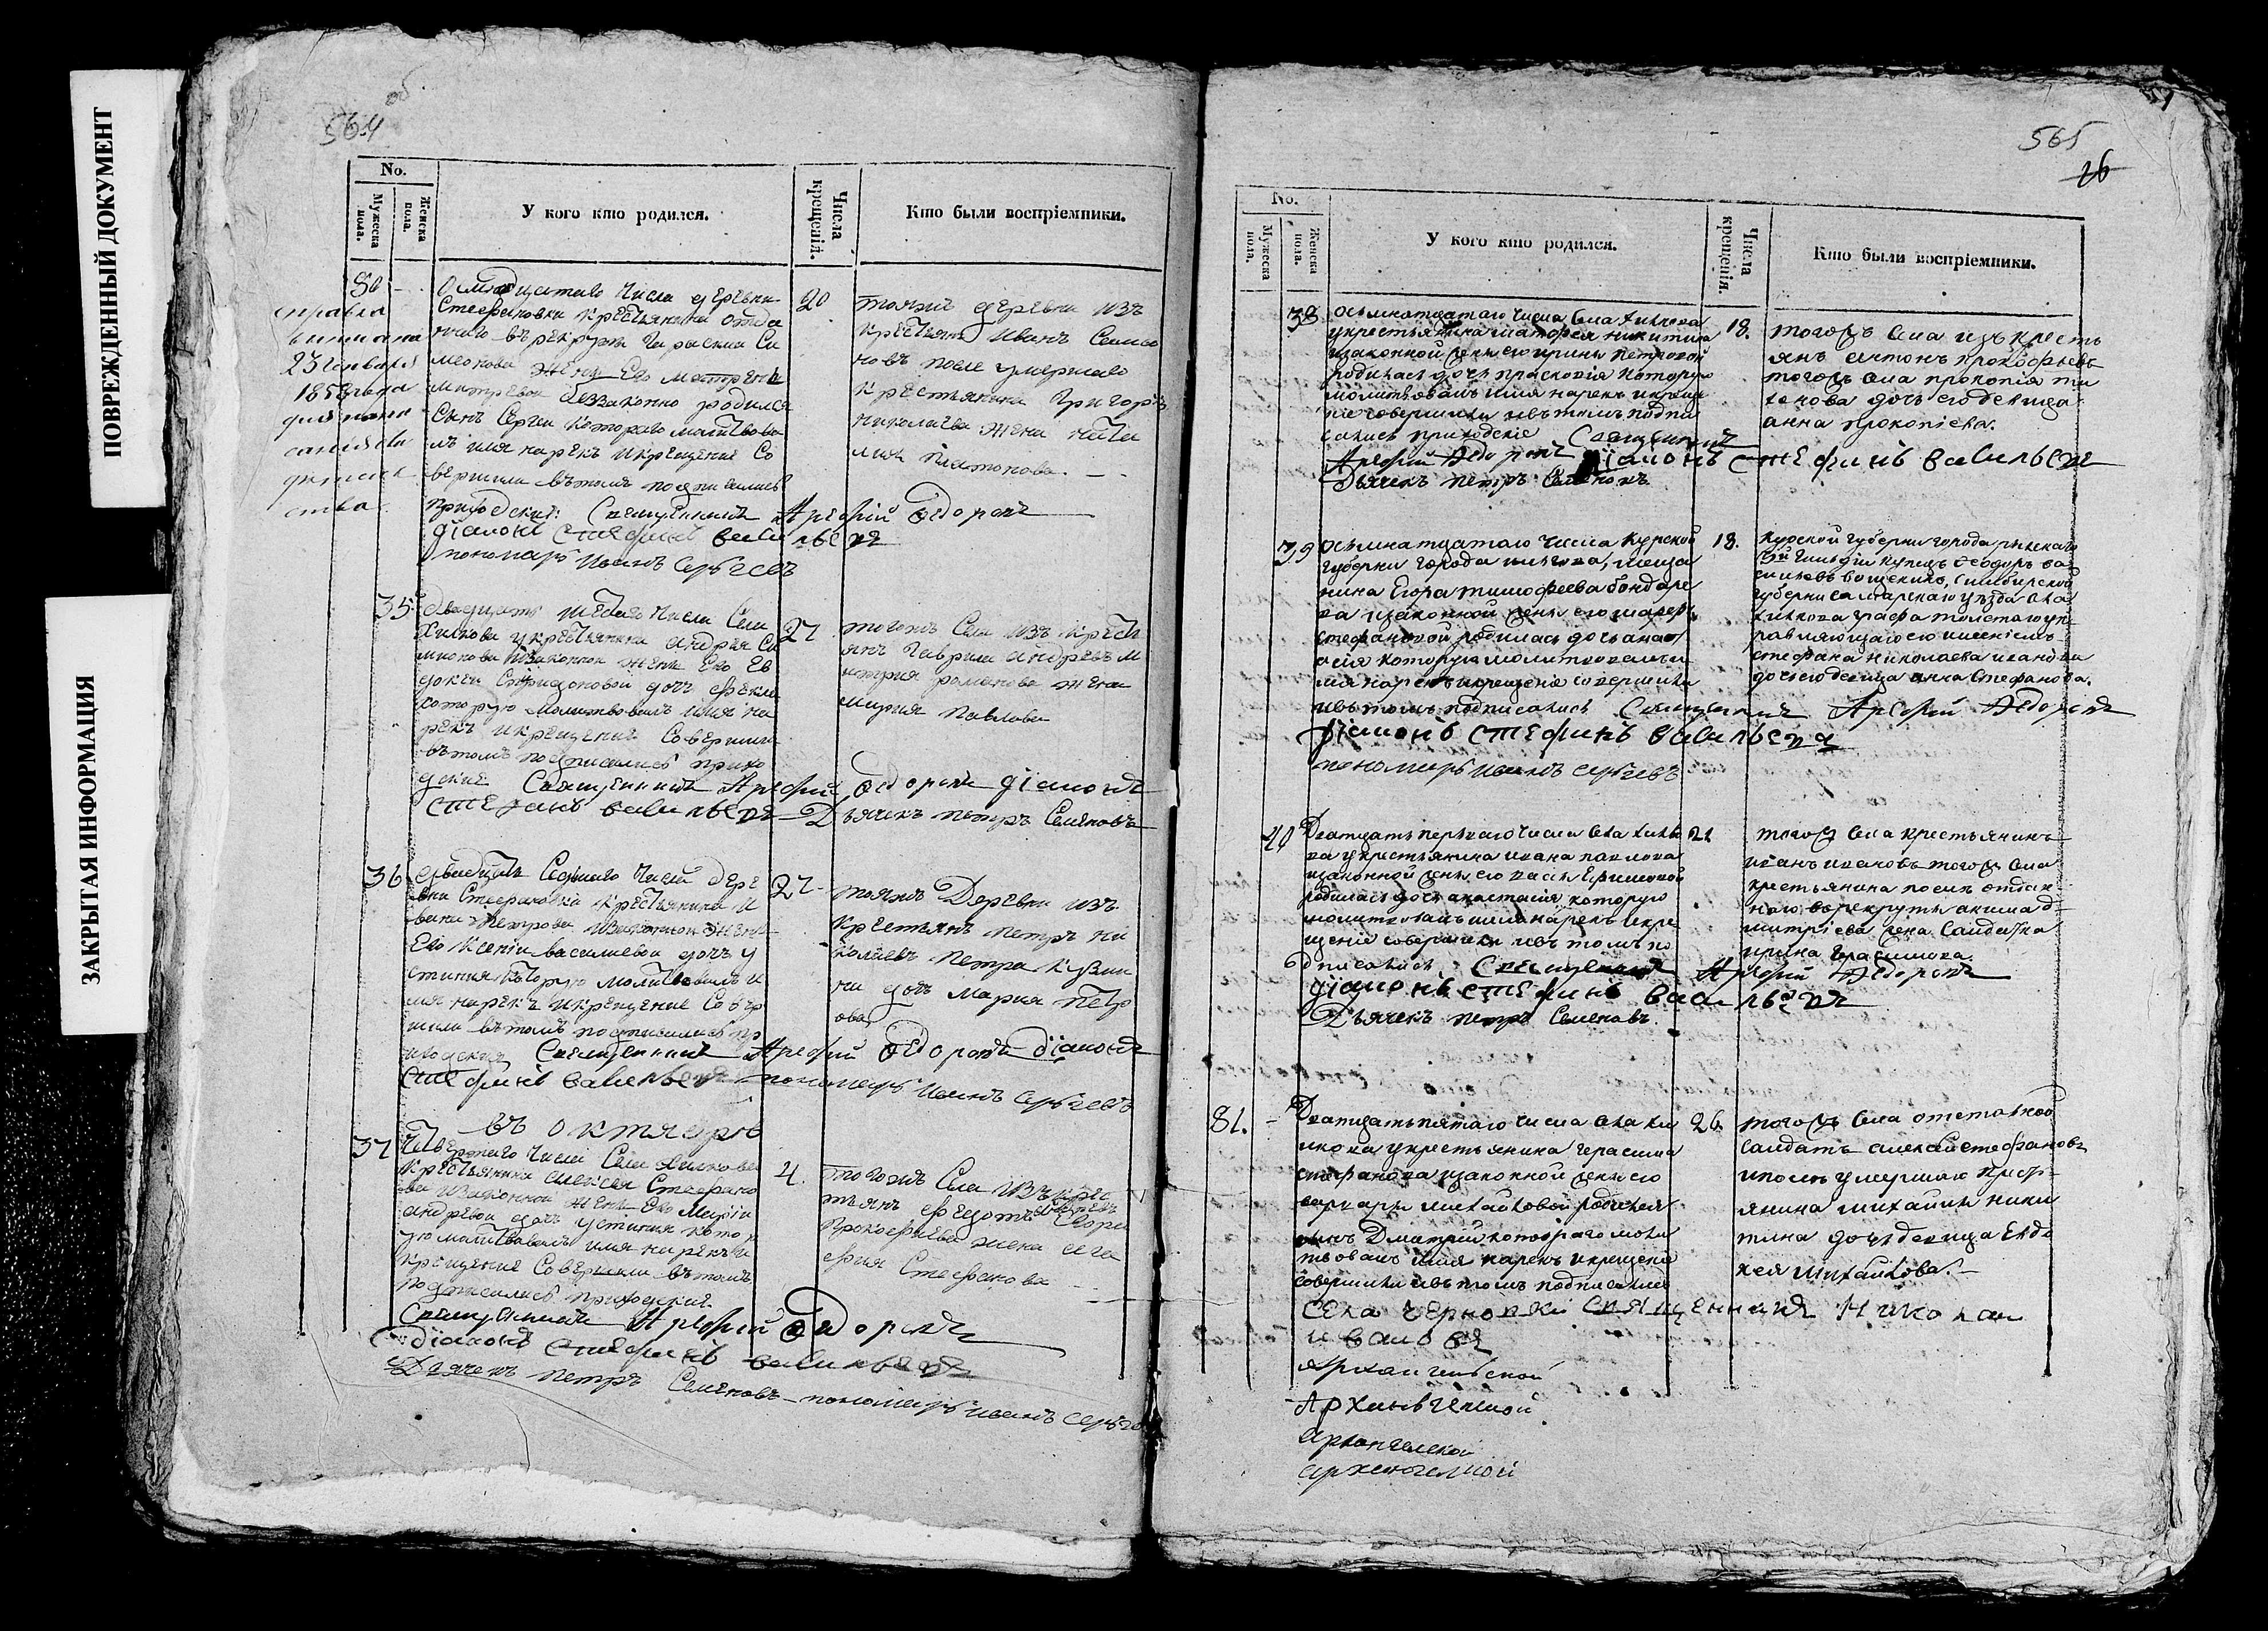 ПОВРЕЖДЕННЫЙ ДОКУМЕНТ
ЗАКРЫТАЯ ИНФОРМАЦИЯ
564 об.
No.
Мужеска пола.
Женска пола.
У кого кто родился.
Числа крещенія.
Кто были воспріемники.
80 —
числа деревни
Стефановки крестьянина отда
ннаго въ рекруты Герасима Си
меонова жены Его Матрены
Митревой беззаконно родился
Сынъ Сергей котораго молитвова
лъ имя нарекъ и крещение Со
вершили въ томъ подписались
приходские: Священникъ Арефий Федоровъ
діаконъ Стефанъ васильевъ
пономарь Иванъ Сергеевъ
20
тояжъ деревни изъ
крестьянъ Иванъ
новъ после умершаго
крестьянина Григорья
Николаева жена Ната
лия Платонова. —
справка
выписана
23 генваря
1858 года
35
двадцать шестаго числа Села
Хилкова у крестьянина Андрея Си
мионова изаконной жены Его Ев
докеи Спиридоновой дочь Фекла
которую молитвовалъ имя на
рекъ и крещение Соверши
въ томъ подписались прихо
дские Священникъ Арефий Федоровъ діаконъ
Стефанъ васильевъ Дьячекъ петръ Семеновъ
27
тогожъ Села изъ крестъ
янъ Гаврила Андреевъ М
итрия романова жена
Мария Павлова
36
двадцать Седмаго числа дере
вни Стефановки крестьянина И
вана Петрова изаконной жены
Его Ксении василиевой дочь У
стиния которую молитвовалъ и
мя нарекъ и крещение Совер
шили въ томъ подписались пр
иходския Священникъ Арефий Федоровъ діаконъ
Стефанъ васильевъ пономарь Иванъ Сергеевъ
27
тояжъ Деревни изъ
крестьянъ петръ Ни
колаевъ Петра Кузми
на дочь Мария Петр
ова
въ Октябре
37
Четвертаго числа Села Хилкова
Крестьянина Алексея Стефано
ва изаконной жены Его Марии
Андревой дочь Устиния котор
ую молитвовалъ имя нарекъ и
крещение Совершили въ томъ
подписались приходския.
Священникъ Арефий Федоровъ
діаконъ Стефанъ васильевъ
Дьячекъ петръ Семеновъ пономарь Иванъ Серге
4.
тогожъ Села изъ крес
тьянъ Федотъ
Прокофьева жена Ага
фия Стефанова —
565
26
No.
Мужеска пола.
Женска пола.
У кого кто родился.
Числа крещенія.
Кто были воспріемники.
38
осьмнатцатаго числа села хилкова
у крестьянина матфея никитина
изаконной жены его ирины петровой
родилась дочь прасковія которую
молитвовалъ имя нарекъ и креще
ніе совершили и въ томъ подпи
сались приходскіе Священникъ
Арефий Федоровъ діаконъ стефанъ васильевъ
Дьячекъ петръ Семеновъ
18.
тогожъ села изъ кресть
янъ антонъ прокофьевъ
тогожъ села прокопія ти
хонова дочь его девица
анна прокопіева.
39
осьмнатцатаго числа Курской
губерни города мища
нина Егора тимофеева бондаре
ва изаконной жены его марф
стефановой родилась дочь анас
асия которую молитвовалъ и
мя нарекъ и крещение совершили
и въ томъ подписались Священникъ Арефий Федоровъ
діаконъ стефанъ васильевъ
пономарь Иванъ Сергеевъ
18.
Курской губерни города рыльскаго
3й гильдіи купецъ феодоръ ва
симбирской
губерни самарскаго уезда села
хилкова графа толстаго уп
равляющаго его имениемъ
стефана николаева иванова
дочь его девица анна стефанова.
40
Дватцать перваго числа села хилко
ва у крестьянина ивана павлова
изаконной жены его
родилась дочь анастасия которую
молитвовалъ имя нарекъ и кре
щение совершили и въ томъ по
дписались Священникъ Арефий Федоровъ
діаконъ стефанъ васильевъ
Дьячекъ петръ Семеновъ.
21
тогожъ села крестьянинъ
иванъ ивановъ тогожъ села
крестьянина после отдан
наго в рекруты акима д
митріева жена Салдатка
ирина герасимова
81. —
Дватцать пятаго числа села хи
лкова у крестьянина герасима
стефанова изаконной жены его
варвары михайловой родился
сынъ Дмитрий котораго моли
твовалъ имя нарекъ и крещение
совершили и въ томъ подписались
села черновки священникъ Николай
Ивановъ
Архангельской
Архангельской
Архангельской
Архангельской
26.
тогожъ села отставной
салдатъ алексей стефановъ
и после умершаго крест
янина михаила ники
тина дочь девица Евдо
кея михайлова. —